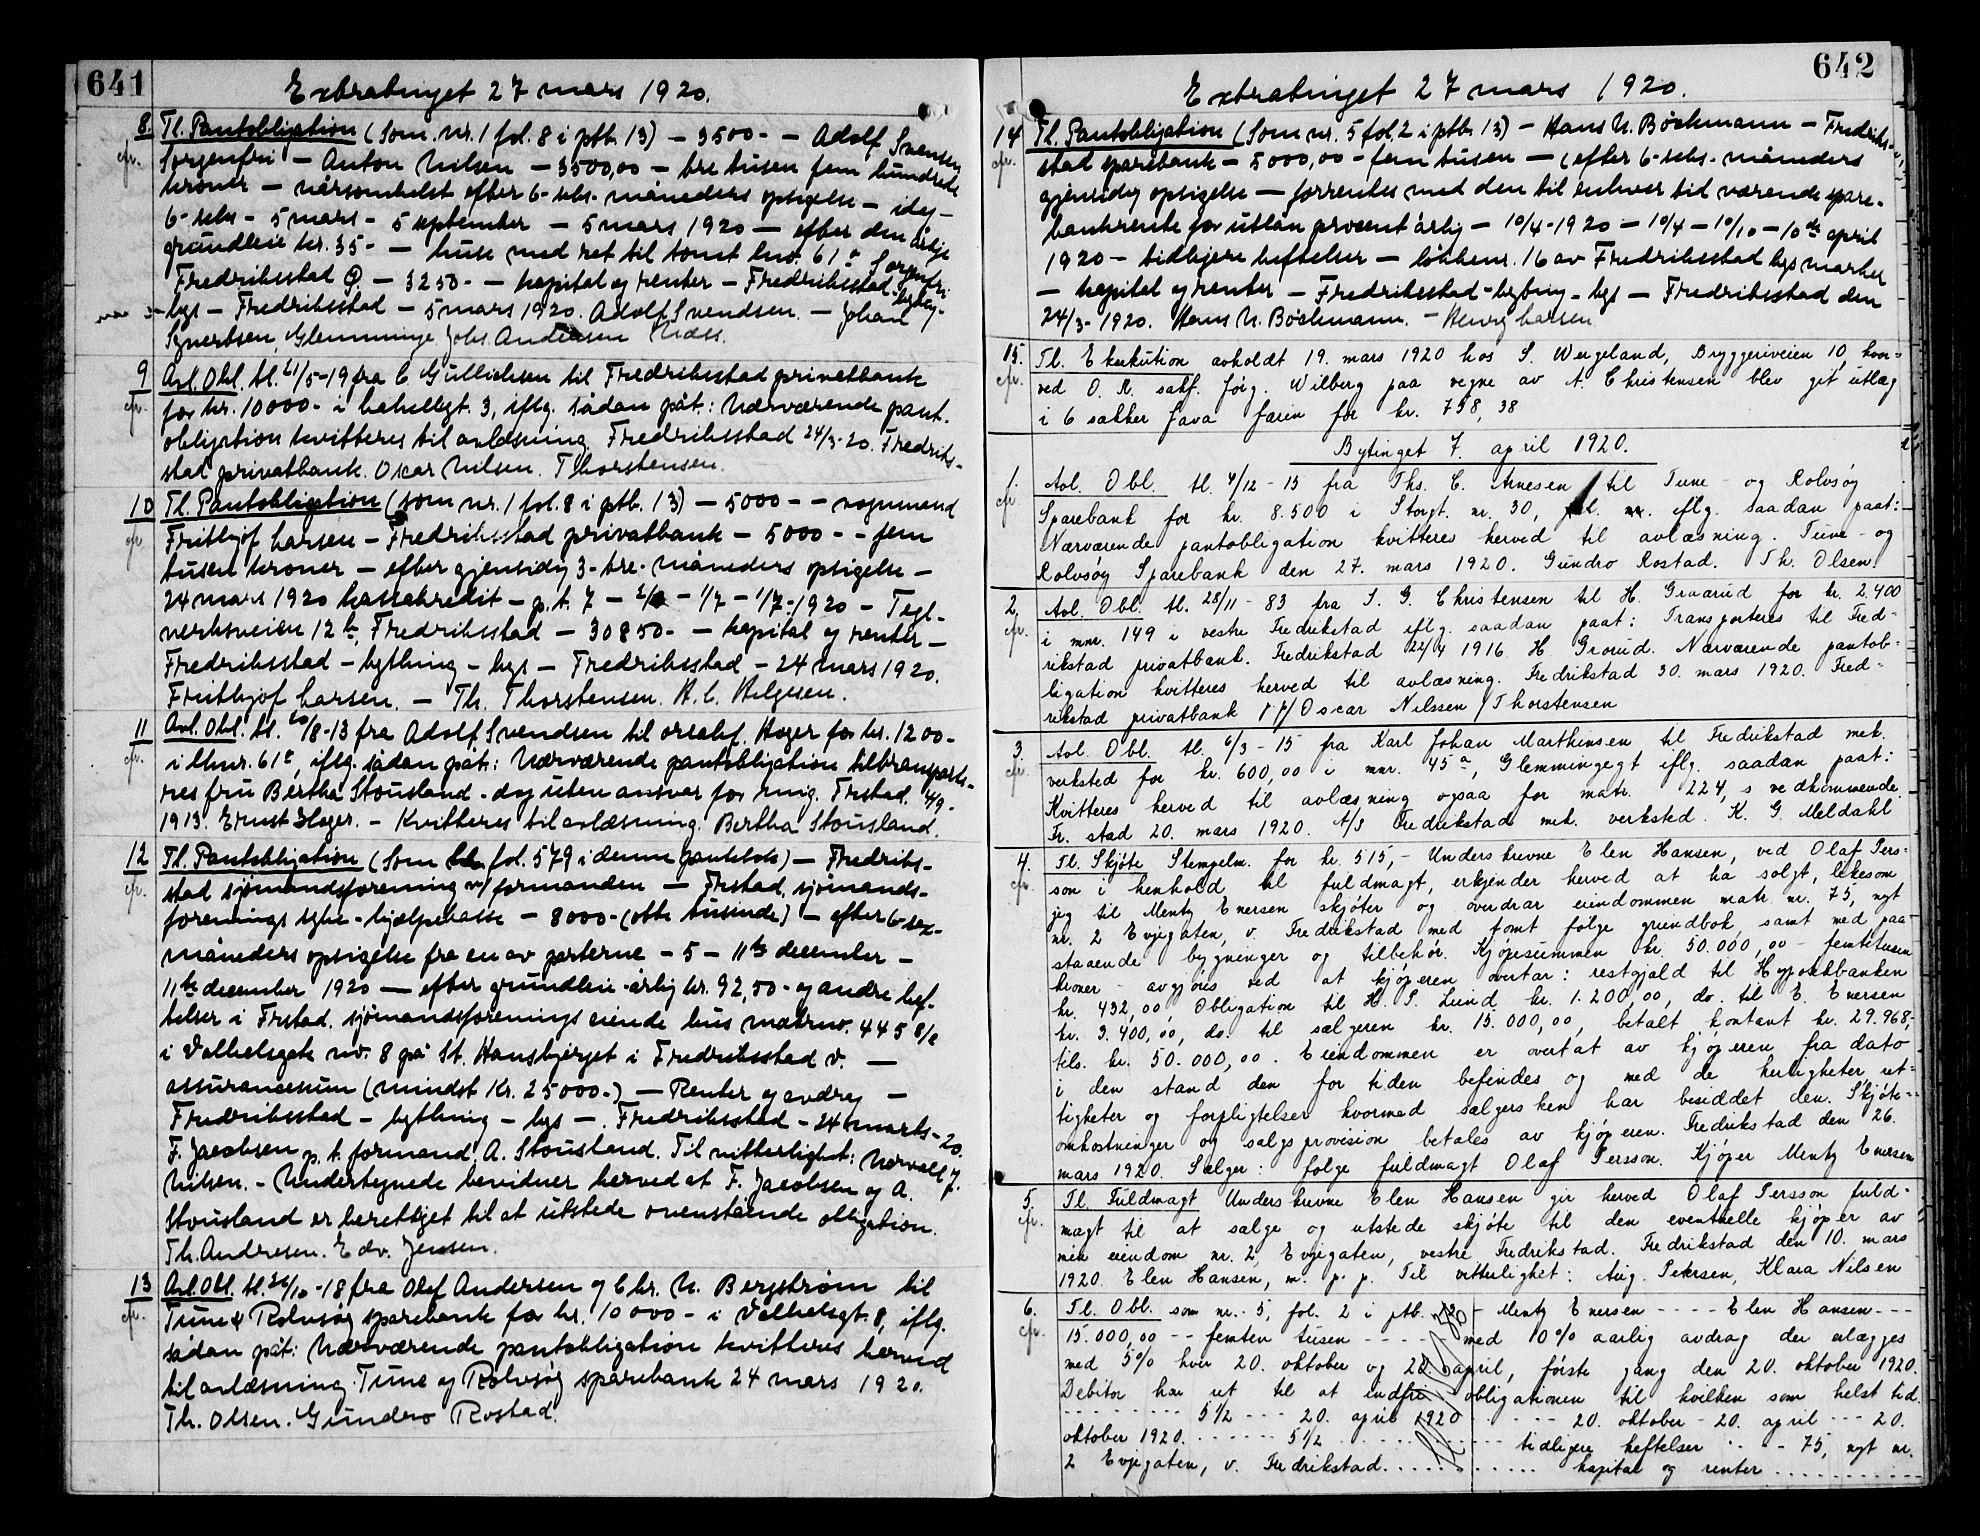 641
Extratinget 27 mars 1920.
8. Tl. Pantobligation (Som nr. 1 fol. 8 i ptb. 13) – 3500 – – Adolf Svensen
cfr. Sorgenfri – Anton Nilsen – 3500,00 – tre tusen fem hundrede
kroner – nårsomhelst efter 6-seks-måneders opsigelse –
6-seks – 5 mars – 5 september – 5 mars 1920 – efter den årlige
grundleie kr. 35 – – huse med ret til tomt lnr. 61 Sorgenfri
Fredriksstad – 3250 – – kapital og renter – Fredriksstad – bybrug –
bys – Fredriksstad – 5 mars 1920. Adolf Svendsen. – Johan
Syvertsen, Glemminge. Johs. Andersen Næss.
9 Avl. Obl. tl. 21/5-19 fra C. Gullichsen til Fredriksstad privatbank
cfr. for kr. 10000 – i bakeligt. 3, iflg. sådan påt.: Nærværende pant-
obligation kvitteres til avlæsning. Fredriksstad 24/3-20. Fredriks-
stad privatbank. Oscar Nilsen. Thorstensen.
10 Tl. Pantobligation (som nr. 1 fol. 8 i ptb. 13) – 5000 – – vognmand
cfr. Frithjof Larsen – Fredriksstad privatbank – 5000 – – fem
tusen kroner – efter gjensidig 3-tre-måneders opsigelse –
24 mars 1920 kassekredit – p.t. 7 – – 1/7 – 1/7-1920 – Tegl-
verksveien 12 b, Fredriksstad – 30850 – – kapital og renter –
Fredriksstad – bything – bys – Fredriksstad – 24 mars 1920.
Frithjof Larsen. – Th. Thorstensen. H. C. Helgesen.
11 Avl. Obl. tl. 20/8-13 fra Adolf Svendsen til Hager for kr. 1200 –
cfr. i lnr. 61, iflg. sådan påt.: Nærværende pantobligation tiltransporte-
res fru Bertha Stousland – dog uten ansvar for mig. Frstad. 4/9-
1913. Ernst Hager. – Kvitteres til avlæsning. Bertha Stousland.
12 Tl. Pantobligation (Som fol. 579 i denne pantebok) – Fredriks-
cfr. stad sjømandsforening v/ formanden – Frstad. sjømands-
forenings syke-hjælpekasse – 8000 – (otte tusinde) – efter 6-sex-
måneders opsigelse fra en av parterne – 5 – 11te december –
11te december 1920 – efter grundleie årlig kr. 92,50 – og andre hef-
telser i Frstad. sjømandsforenings eiende hus matrnr. 445
i Valhalsgate nr. 8 på St. Hansbjerget i Fredriksstad v. –
assurancesum (mindst Kr. 25000 –) – Renter og avdrag –
Fredriksstad – bything – bys – Fredriksstad – 24 marts – 20.
F. Jacobsen p.t. formand. A. Stousland. Til vitterlighet: Norvald J.
Nilsen. – Undertegnede bevidner herved at F. Jacobsen og A.
Stousland er berettiget til at utstede ovenstående obligation.
Th. Andresen. Edv. Jensen.
13 Avl. Obl. tl. 26/10-18 fra Olaf Andersen og Chr. N. Bergstrøm til
cfr. Tune & Rolvsøy sparebank for kr. 10000 – i Valhalsgt. 8, iflg.
sådan påt: Nærværende pantobligation kvitteres herved
til avlæsning. Tune og Rolvsøy sparebank 24 mars 1920.
Th. Olsen. Gundro Rostad.
642
Extratinget 27 mars 1920.
14 Tl. Pantobligation (Som nr. 5 fol. 2 i ptb. 13) – Hans N. Bøckmann – Fredriks-
cfr. stad sparebank – 5000,00 – fem tusen – (efter 6-seks-måneders
gjensidig opsigelse – forrentes med den til enhver tid værende spare-
bankrente for utlån procent årlig – 10/4-1920 – 10/4 – 10/10 – 10de april
1920 – tidligere heftelser – løkkenr. 16 av Fredriksstad bys marker
– kapital og renter – Fredriksstad – bything – bys – Fredriksstad den
24/3-1920. Hans N. Bøckmann. – Henry Larsen.
15. Tl. Ekseкution avholdt 19. mars 1920 hos S. Wergeland, Bryggeriveien 10, hvor-
cfr. ved O. R. sakf. Jørg. Wilberg paa vegne av A. Christensen blev git utlæg
i 6 sækker Java farin for kr. 758,38
Bytinget 7. april 1920.
1. Avl. Obl. tl. 4/12-15 fra Ths. C. Arnesen til Tune- og Rolvsøy
cfr. Sparebank for kr. 8.500 i Storgt. nr. 30, iflg. saadan paat:
Nærværende pantobligation kvitteres herved til avlæsning. Tune- og
Rolvsøy Sparebank den 27. mars 1920. Gundro Rostad. Th. Olsen
2. Avl. Obl. tl. 28/11-83 fra S. G. Christensen til H. Graarud for kr. 2.400
cfr. i mnr. 149 i vestre Fredrikstad iflg. saadan paat: Transporteres til Fred-
rikstad privatbank. Fredrikstad 22/4 1916. H. Grorud. Nærværende pantob-
ligation kvitteres herved til avlæsning. Fredrikstad 30. mars 1920. Fred-
rikstad privatbank p/p/ Oscar Nilssen / Thorstensen
3. Avl. Obl. tl. 6/3-15 fra Karl Johan Marthinsen til Fredrikstad mek.
cfr. verksted for kr. 600,00 i mnr. 45 a, Glemmingegt iflg. saadan paat:
Kvitteres herved til avlæsning ogsaa for matr. 224, s vedkommende.
Fr. stad 20. mars 1920. A/S Fredrikstad mek. verksted. K. G. Meldahl
4. Tl. Skjøte Stempelm. for kr. 515,- Underskrevne Elen Hansen, ved Olaf Pers-
cfr. son i henhold til fuldmagt, erkjender herved at ha solgt, likesom
jeg til Mentz Enersen skjøter og overdrar eiendommen matr. nr. 75, nyt
nr. 2 Evjegaten, v. Fredrikstad med tomt følge grundbok, samt med paa-
staaende bygninger og tilbehør. Kjøpesummen kr. 50.000,00 – femtitusen
kroner – avgjøres ved at kjøperen overtar: restgjæld til Hypotekbanken
kr. 432,00, Obligation til H. S. Lund kr. 1.200,00, do. til E. Enersen
kr. 3.400,00, do. til sælgeren kr. 15.000,00, betalt kontant kr. 29.968,-
tils. kr. 50.000,00. Eiendommen er overtat av kjøperen fra dato
i den stand den for tiden befindes og med de herligheter ret-
tigheter og forpligtelser hvormed sælgersken har besiddet den. Skjøte-
omkostninger og salgsprovision betales av kjøperen. Fredrikstad den 26.
mars 1920. Sælger: følge fuldmagt Olaf Persson. Kjøper Mentz Enersen
5. Tl. Fuldmagt Underskrevne Elen Hansen gir herved Olaf Persson fuld-
cfr. magt til at sælge og utstede skjøte til den eventuelle kjøper av
min eiendom nr. 2, Evjegaten, vestre Fredrikstad. Fredrikstad den 10. mars
1920. Elen Hansen, m. p. p. Til vitterlighet: Aug. Petersen, Klara Nilsen
6. Tl. Obl. som nr. 5, fol. 2 i ptb. – Mentz Enersen - - - - Elen Hansen - - -
cfr. 15.000,00 - - femten tusen - - - - - med 10% aarlig avdrag der erlægges
med 5% hver 20. oktober og 20. april, første gang den 20. oktober 1920.
Debitor har ret til at indfri obligationen til hvilken som helst tid.
- - - - - - - - 5½ - - - 20. april 1920 - - - - 20. oktober - 20. april - - - 20.
oktober 1920. - - - - - - 5½ - - - - - - - - tidligere heftelser - - - 75, nyt nr.
2 Evjegaten, v. Fredrikstad. . . . . . . . . . . . kapital og renter . . . . . . . . . .